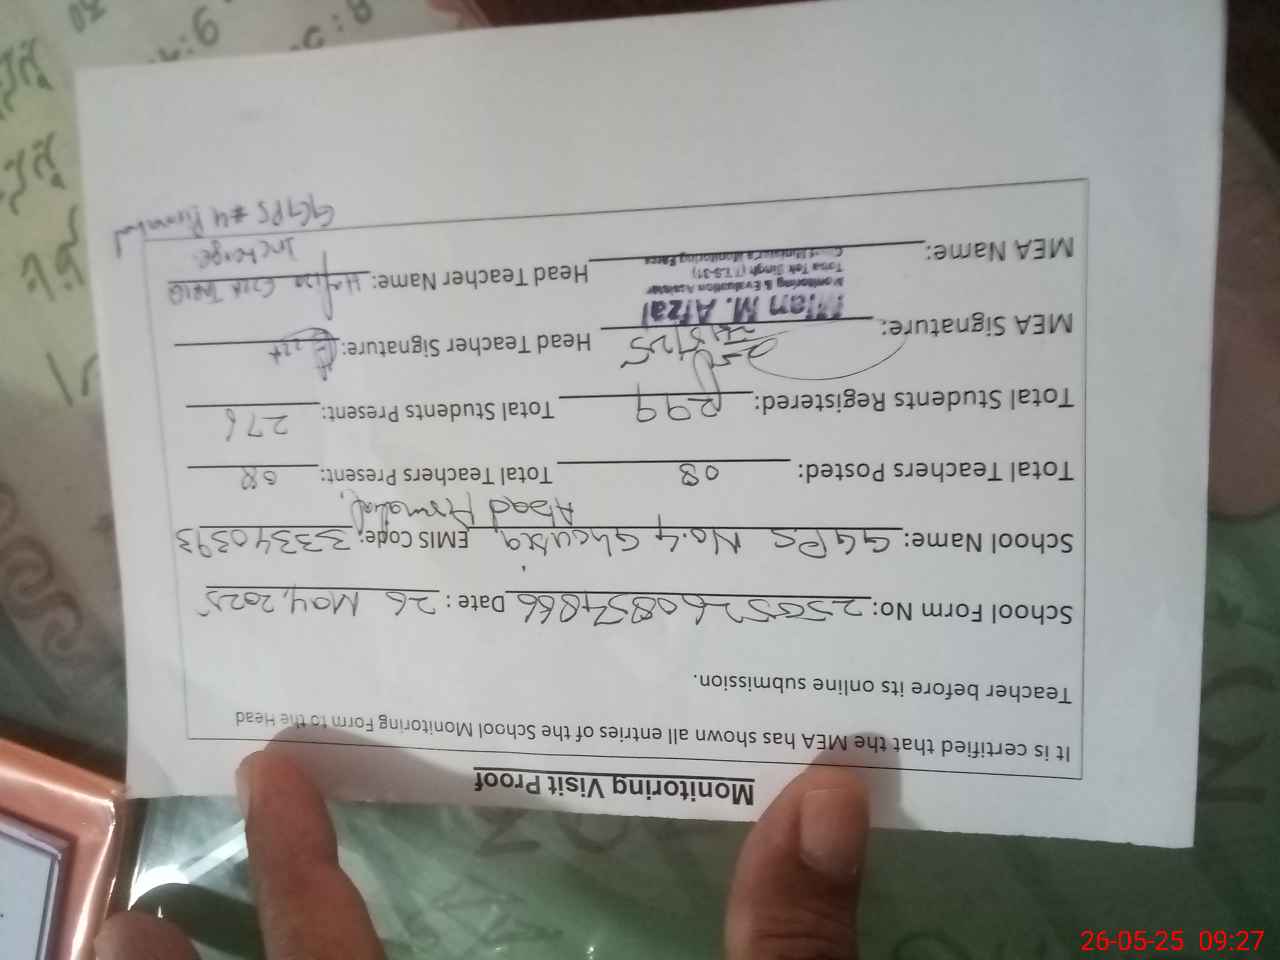 Monitoring Visit Proof
It is certified that the MEA has shown all entries of the School Monitoring Form to the Head
Teacher before its online submission.
School Form No: 25052608554866 Date : 26 May, 2025
School Name: GGPS No.4 Ghousia EMIS Code: 33340393
Abad Pirmahal,
Total Teachers Posted: 08 Total Teachers Present: 08
Total Students Registered: 299 Total Students Present: 276
MEA Signature: Head Teacher Signature:
Mian M. Afzal
Monitoring & Evaluation Assistant
Toba Tek Singh (T.S-31)
MEA Name: Head Teacher Name: Hafiza
Incharge
GGPS #4 Pirmahal
26-05-25 09:27